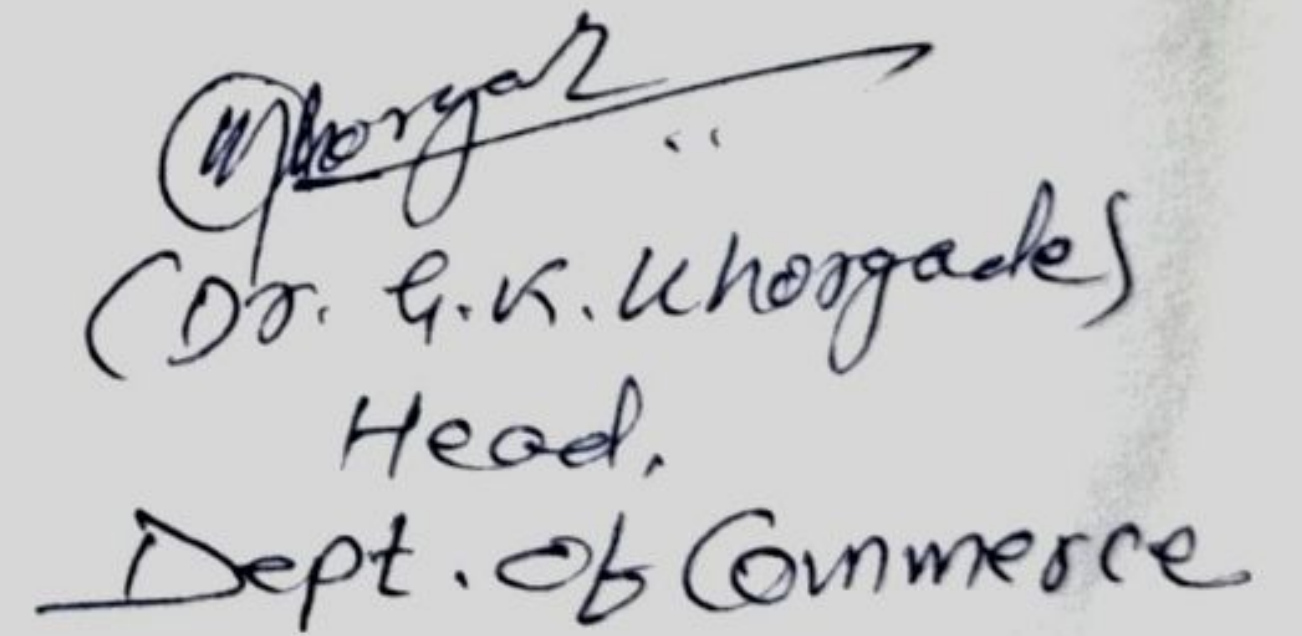 (Dr. G.K. Khorgade)
Head,
Dept. of Commerce